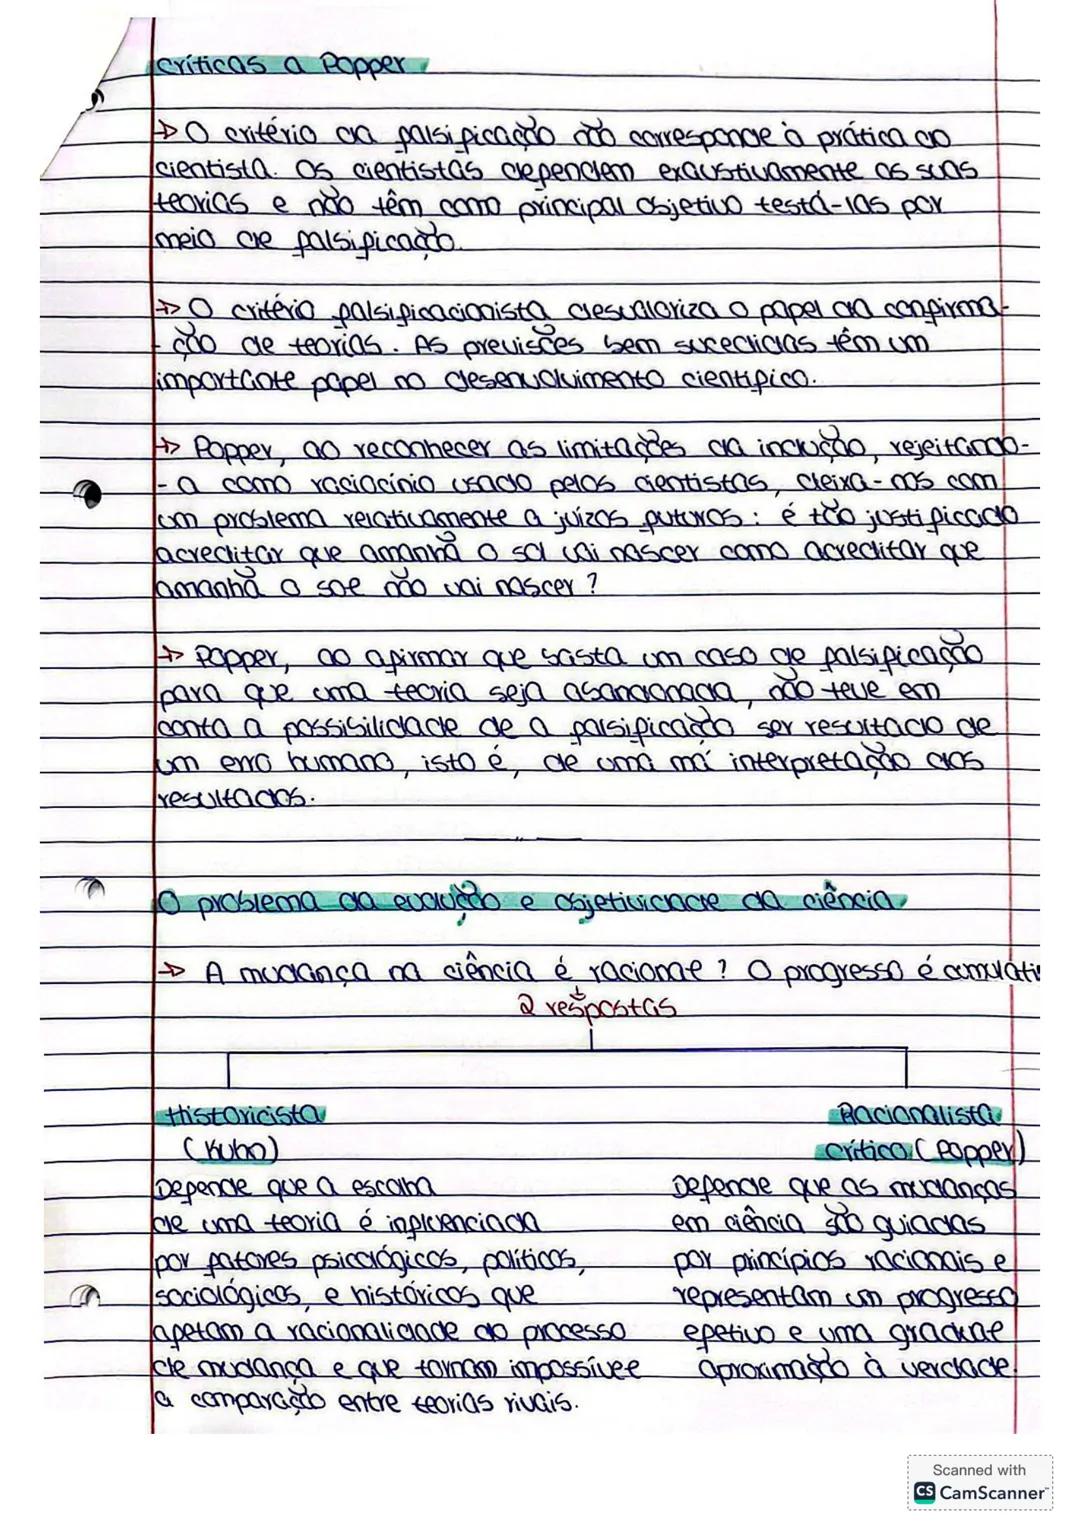 críticas a Popper
→ O critério da falsificação não corresponde à prática do
cientista. Os cientistas defendem exaustivamente as suas
teorias e não têm como principal objetivo testá-las por
meio de falsificação.
→ O critério falsificacionista desvaloriza o papel da confirma-
- ção de teorias. As previsões bem sucedidas têm um
importante papel no desenvolvimento científico.
→ Popper, ao reconhecer as limitações da indução, rejeitando-
- a como raciocínio usado pelos cientistas, deixa-nos com
um problema relativamente a juízos futuros: é tão justificado
acreditar que amanhã o sol vai nascer como acreditar que
amanhã o sol não vai nascer?
→ Popper, ao afirmar que basta um caso de falsificação
para que uma teoria seja abandonada, não teve em
conta a possibilidade de a falsificação ser resultado de
um erro humano, isto é, de uma má interpretação dos
resultados.
O problema da evolução e objetividade da ciência.
→ A mudança na ciência é racional? O progresso é cumulati
2 respostas
Historicista
(Kuhn)
Defende que a escolha
de uma teoria é influenciada
por fatores psicológicos, políticos,
sociológicos, e históricos que
afetam a racionalidade do processo
de mudança e que tornam impossível
a comparação entre teorias rivais.
Racionalista
crítico (Popper)
Defende que as mudanças
em ciência são guiadas
por princípios racionais e
representam um progresso
efetivo e uma gradual
aproximação à verdade.
Scanned with
CS CamScanner